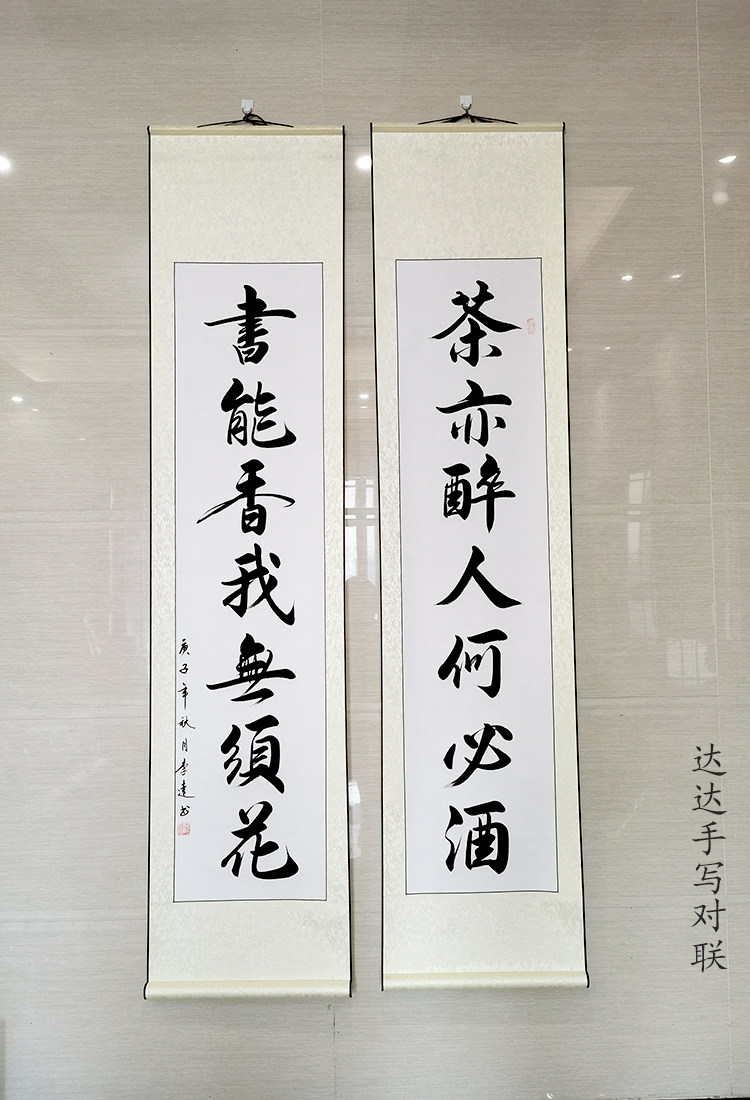 茶亦醉人何必酒
書能香我無須花
庚子年秋月李達书
达达手写对联